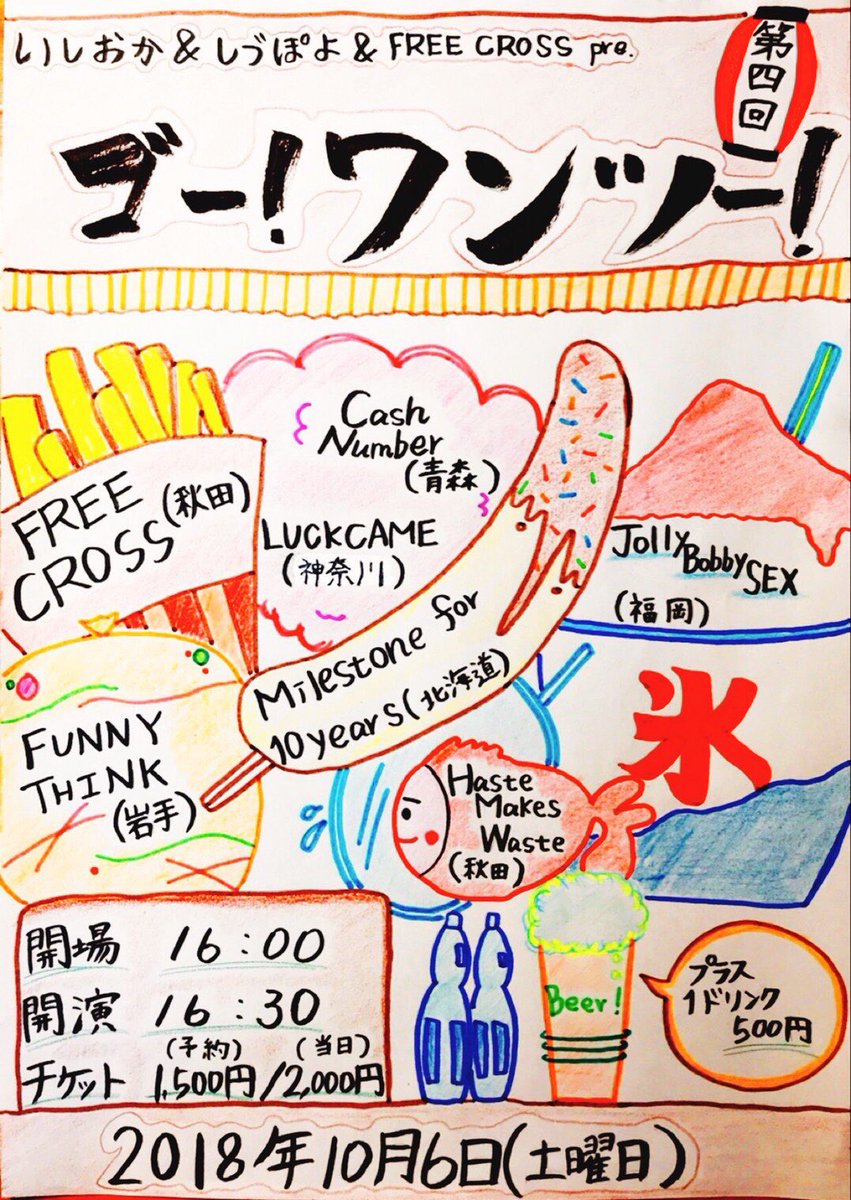 いしおか & しづぽよ & FREE CROSS pre.
第四回
ゴー!ワンツー!
Cash
Number
(青森)
FREE
CROSS
(秋田)
LUCKCAME
(神奈川)
Jolly Bobby SEX
(福岡)
Milestone for
10years(北海道)
FUNNY
THINK
(岩手)
氷
Haste
Makes
Waste
(秋田)
開場 16:00
開演 16:30
(予約) (当日)
チケット 1,500円/2,000円
Beer!
プラス
1ドリンク
500円
2018年10月6日(土曜日)